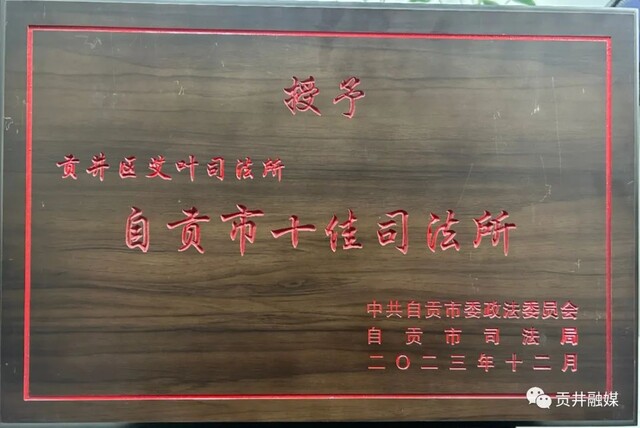 授予
贡井区艾叶司法所
自贡市十佳司法所
中共自贡市委政法委员会
自贡市司法局
二〇二三年十二月
贡井融媒